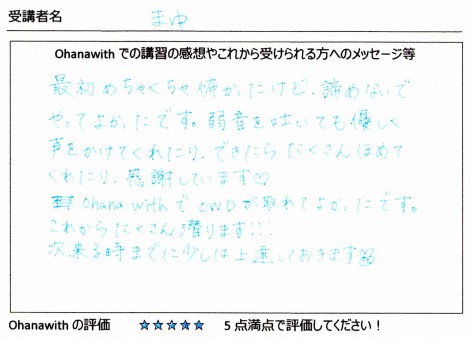 受講者名 まゆ
Ohanawith での講習の感想やこれから受けられる方へのメッセージ等
最初めちゃくちゃ怖かったけど、諦めないで
やってよかったです。弱音を吐いても優しく
声をかけてくれたり、できたらたくさんほめて
くれたり、感謝しています♡
Ohana withでOWDが取れてよかったです。
これからたくさん潜ります!!!
次来る時までに少しは上達しておきます
Ohanawith の評価 ★★★★★ 5点満点で評価してください!